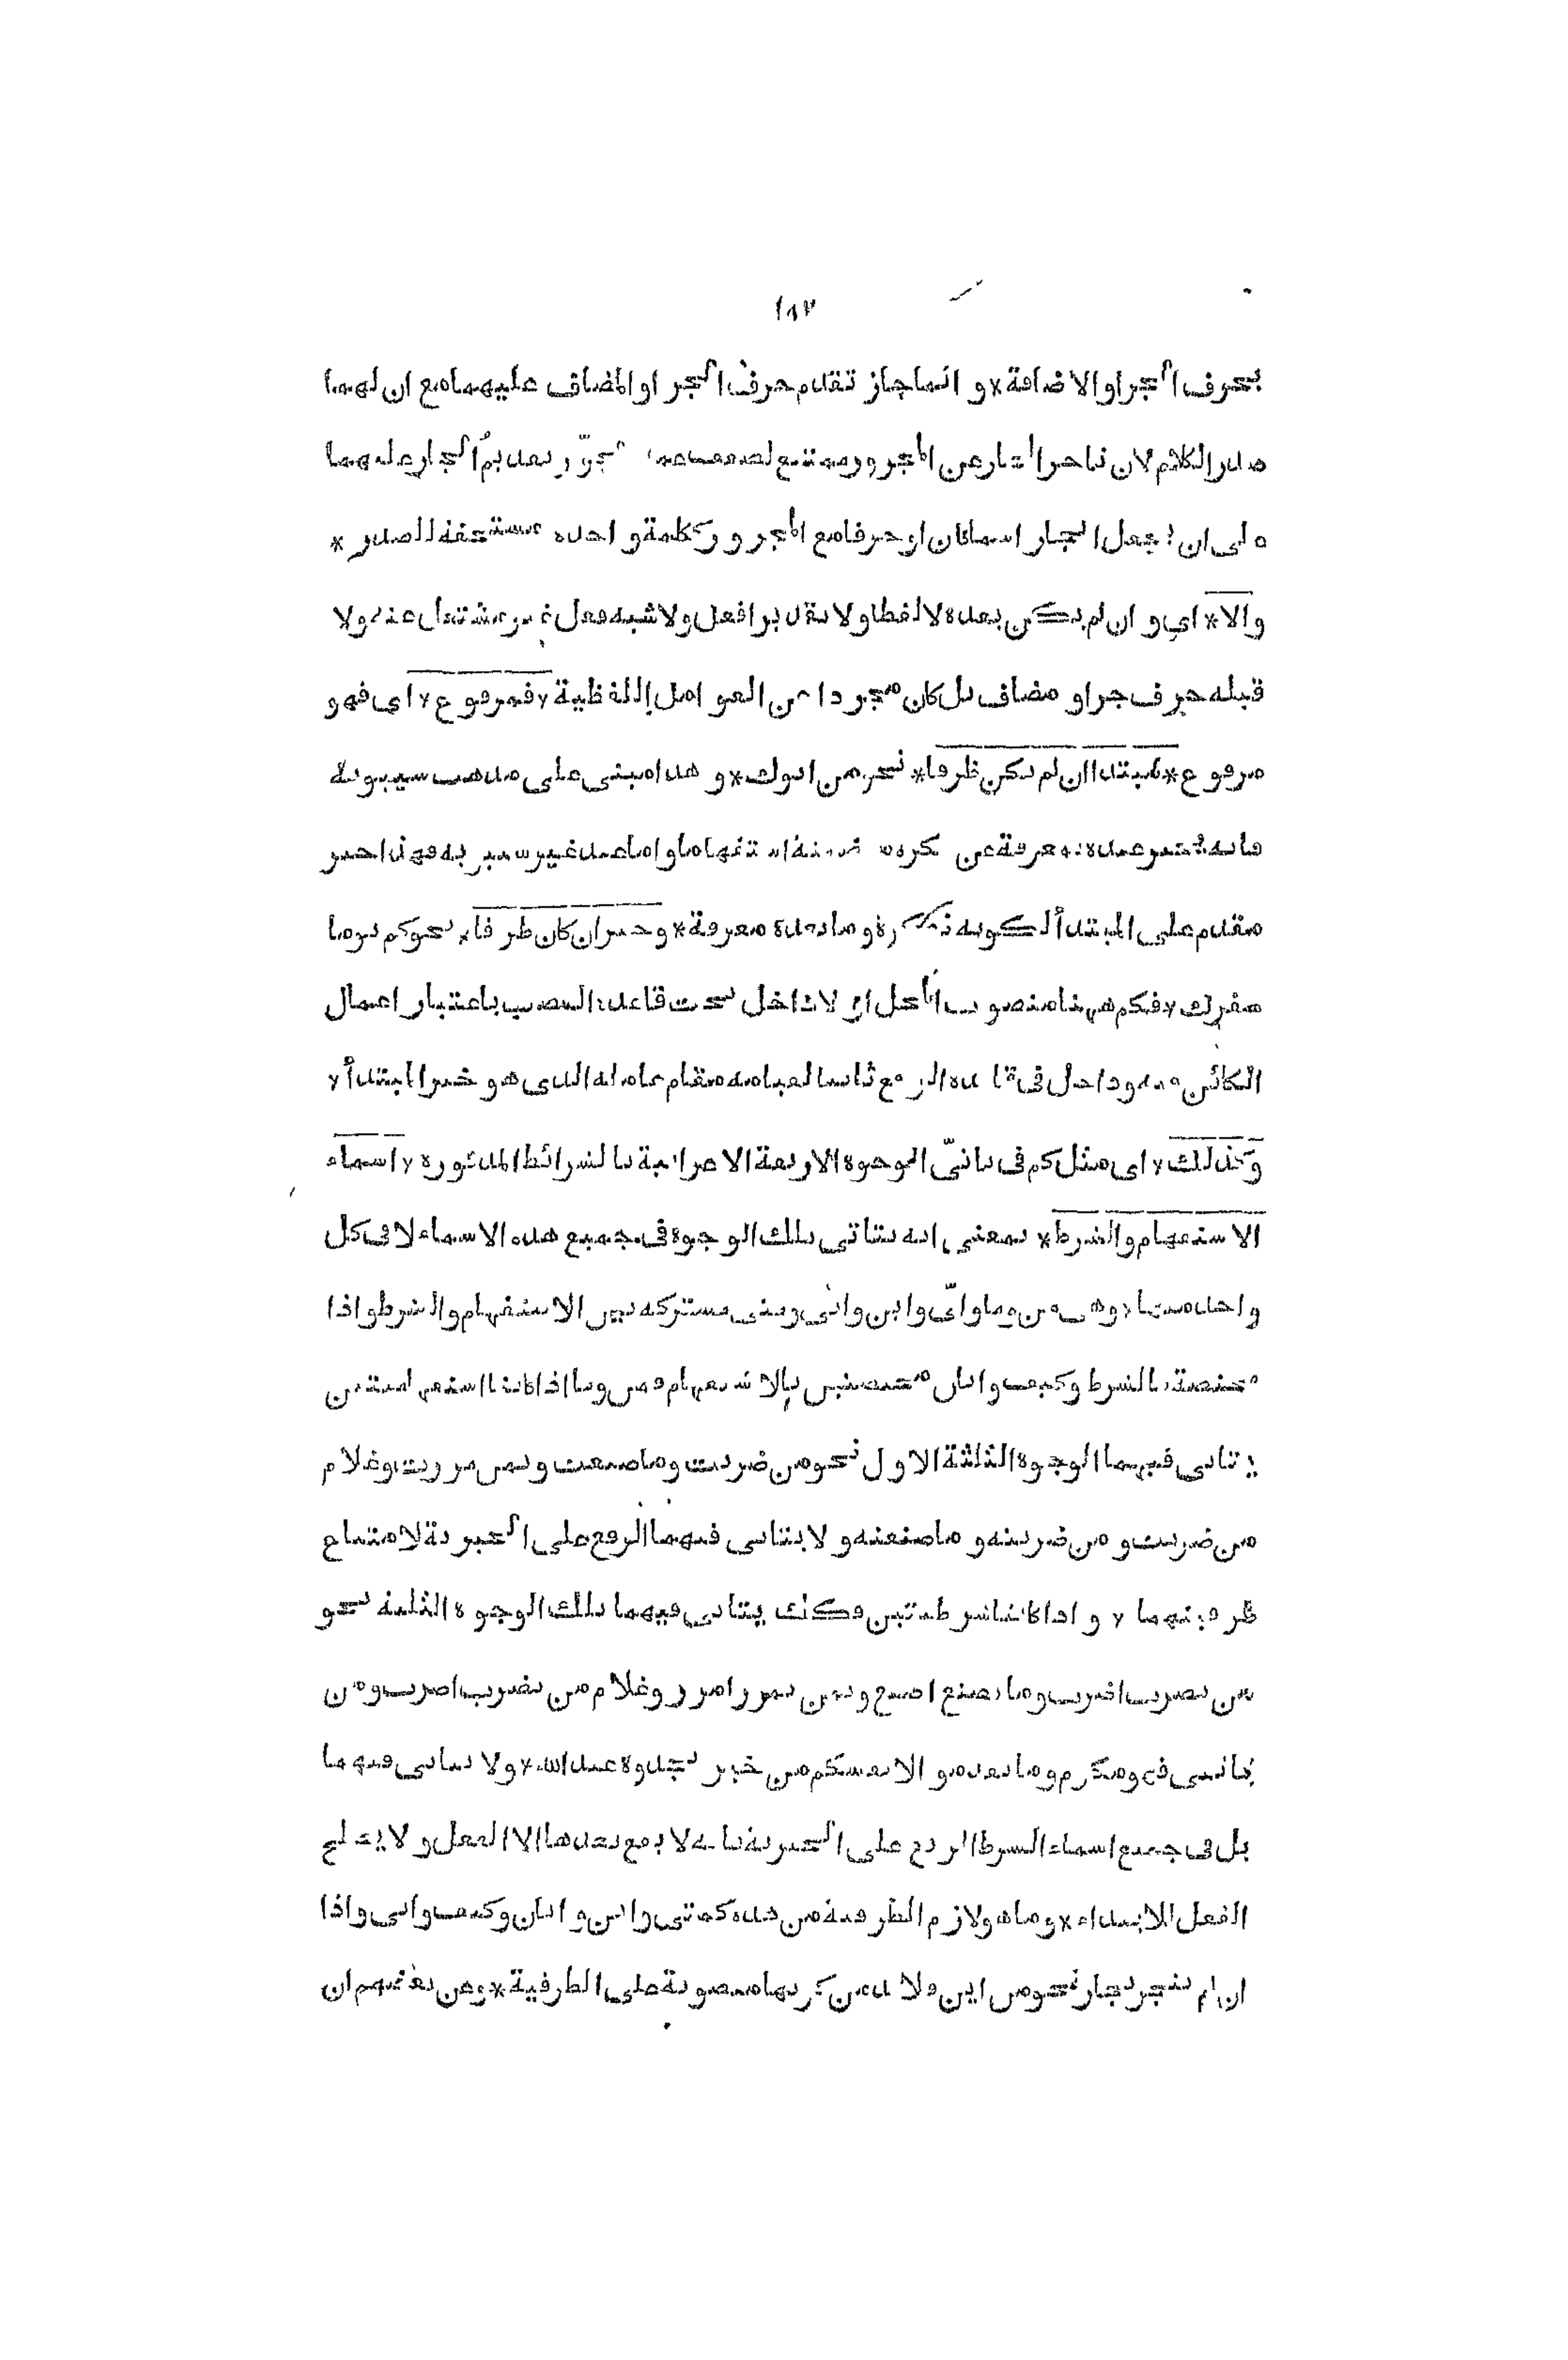 ١٨٣
بحرف الجر او الاضافة * و انما جاز تقدم حرف الجر او المضاف عليهما مع ان لهما
صدر الكلام لان تاخر الجار عن المجرور ممتنع لضعف عمله فجوز تقديم الجار عليهما
على ان يجعل الجار اسما كان او حرفا مع المجرور ككلمة واحدة مستحقة للصدر *
والا * اي و ان لم يكن بعده لا لفظا ولا تقديرا فعل ولا شبه فعل غير مشتغل عنه ولا
قبله حرف جر او مضاف بل كان مجردا من العوامل اللفظية * فمرفوع * اى فهو
مرفوع * مبتدا ان لم يكن ظرفا * نحو من ابوك * و هذا مبنى على مذهب سيبويه
فانه يخبر عنده بمعرفة عن نكرة متضمنة استفهاما و اما عند غير سيبويه فهذا خبر
مقدم على المبتدأ لكونه نكرة و ما بعده معرفة * وخبر ان كان ظرفا * نحو كم يوما
سفرك * فكم ههنا منصوب المحل اولا داخل تحت قاعدة النصب باعتبار اعمال
الكائن فيه وداخل فى قاعدة الرفع ثانيا لقيامه مقام عامله الذى هو خبر المبتدأ *
وكذلك * اى مثل كم فى تاتى الوجوه الاربعة الاعرابية بالشرائط المذكورة * اسماء
الاستفهام والشرط * بمعنى انه يتاتى تلك الوجوه فى جميع هذه الاسماء لا فى كل
واحد منها * وهى من وما واىّ واين وانى ومتى مشتركة بين الاستفهام والشرط واذا
مختصة بالشرط وكيف وايان مختصتين بالاستفهام فمن وما اذا كانتا استفهاميتين
يتاتى فيهما الوجوه الثلثة الاول نحو من ضربت وما صنعت وبمن مررت وغلام
من ضربت و من ضربته و ما صنعته و لا يتاتى فيهما الرفع على الخبرية لامتناع
ظرفيتهما * و اذا كانتا شرطيتين فكذلك يتاتى فيهما تلك الوجوه الثلثة نحو
من تضرب اضرب وما تصنع اصنع وبمن تمرر امرر وغلام من تضرب اضرب ومن
ياتنى فهو مكرم وما تقدموا لانفسكم من خير تجدوه عند الله * ولا يتاتى فيهما
بل فى جميع اسماء الشرط الرفع على الخبرية فانه لا يقع بعدها الا الفعل و لا يصلح
الفعل للابتداء * وما هو لازم الظرفية من هذه كمتى واين و ايان وكيف وانى واذا
ان لم ينجر بجار نحو من اين فلا بد من كونها منصوبة على الظرفية * وعن بعضهم ان